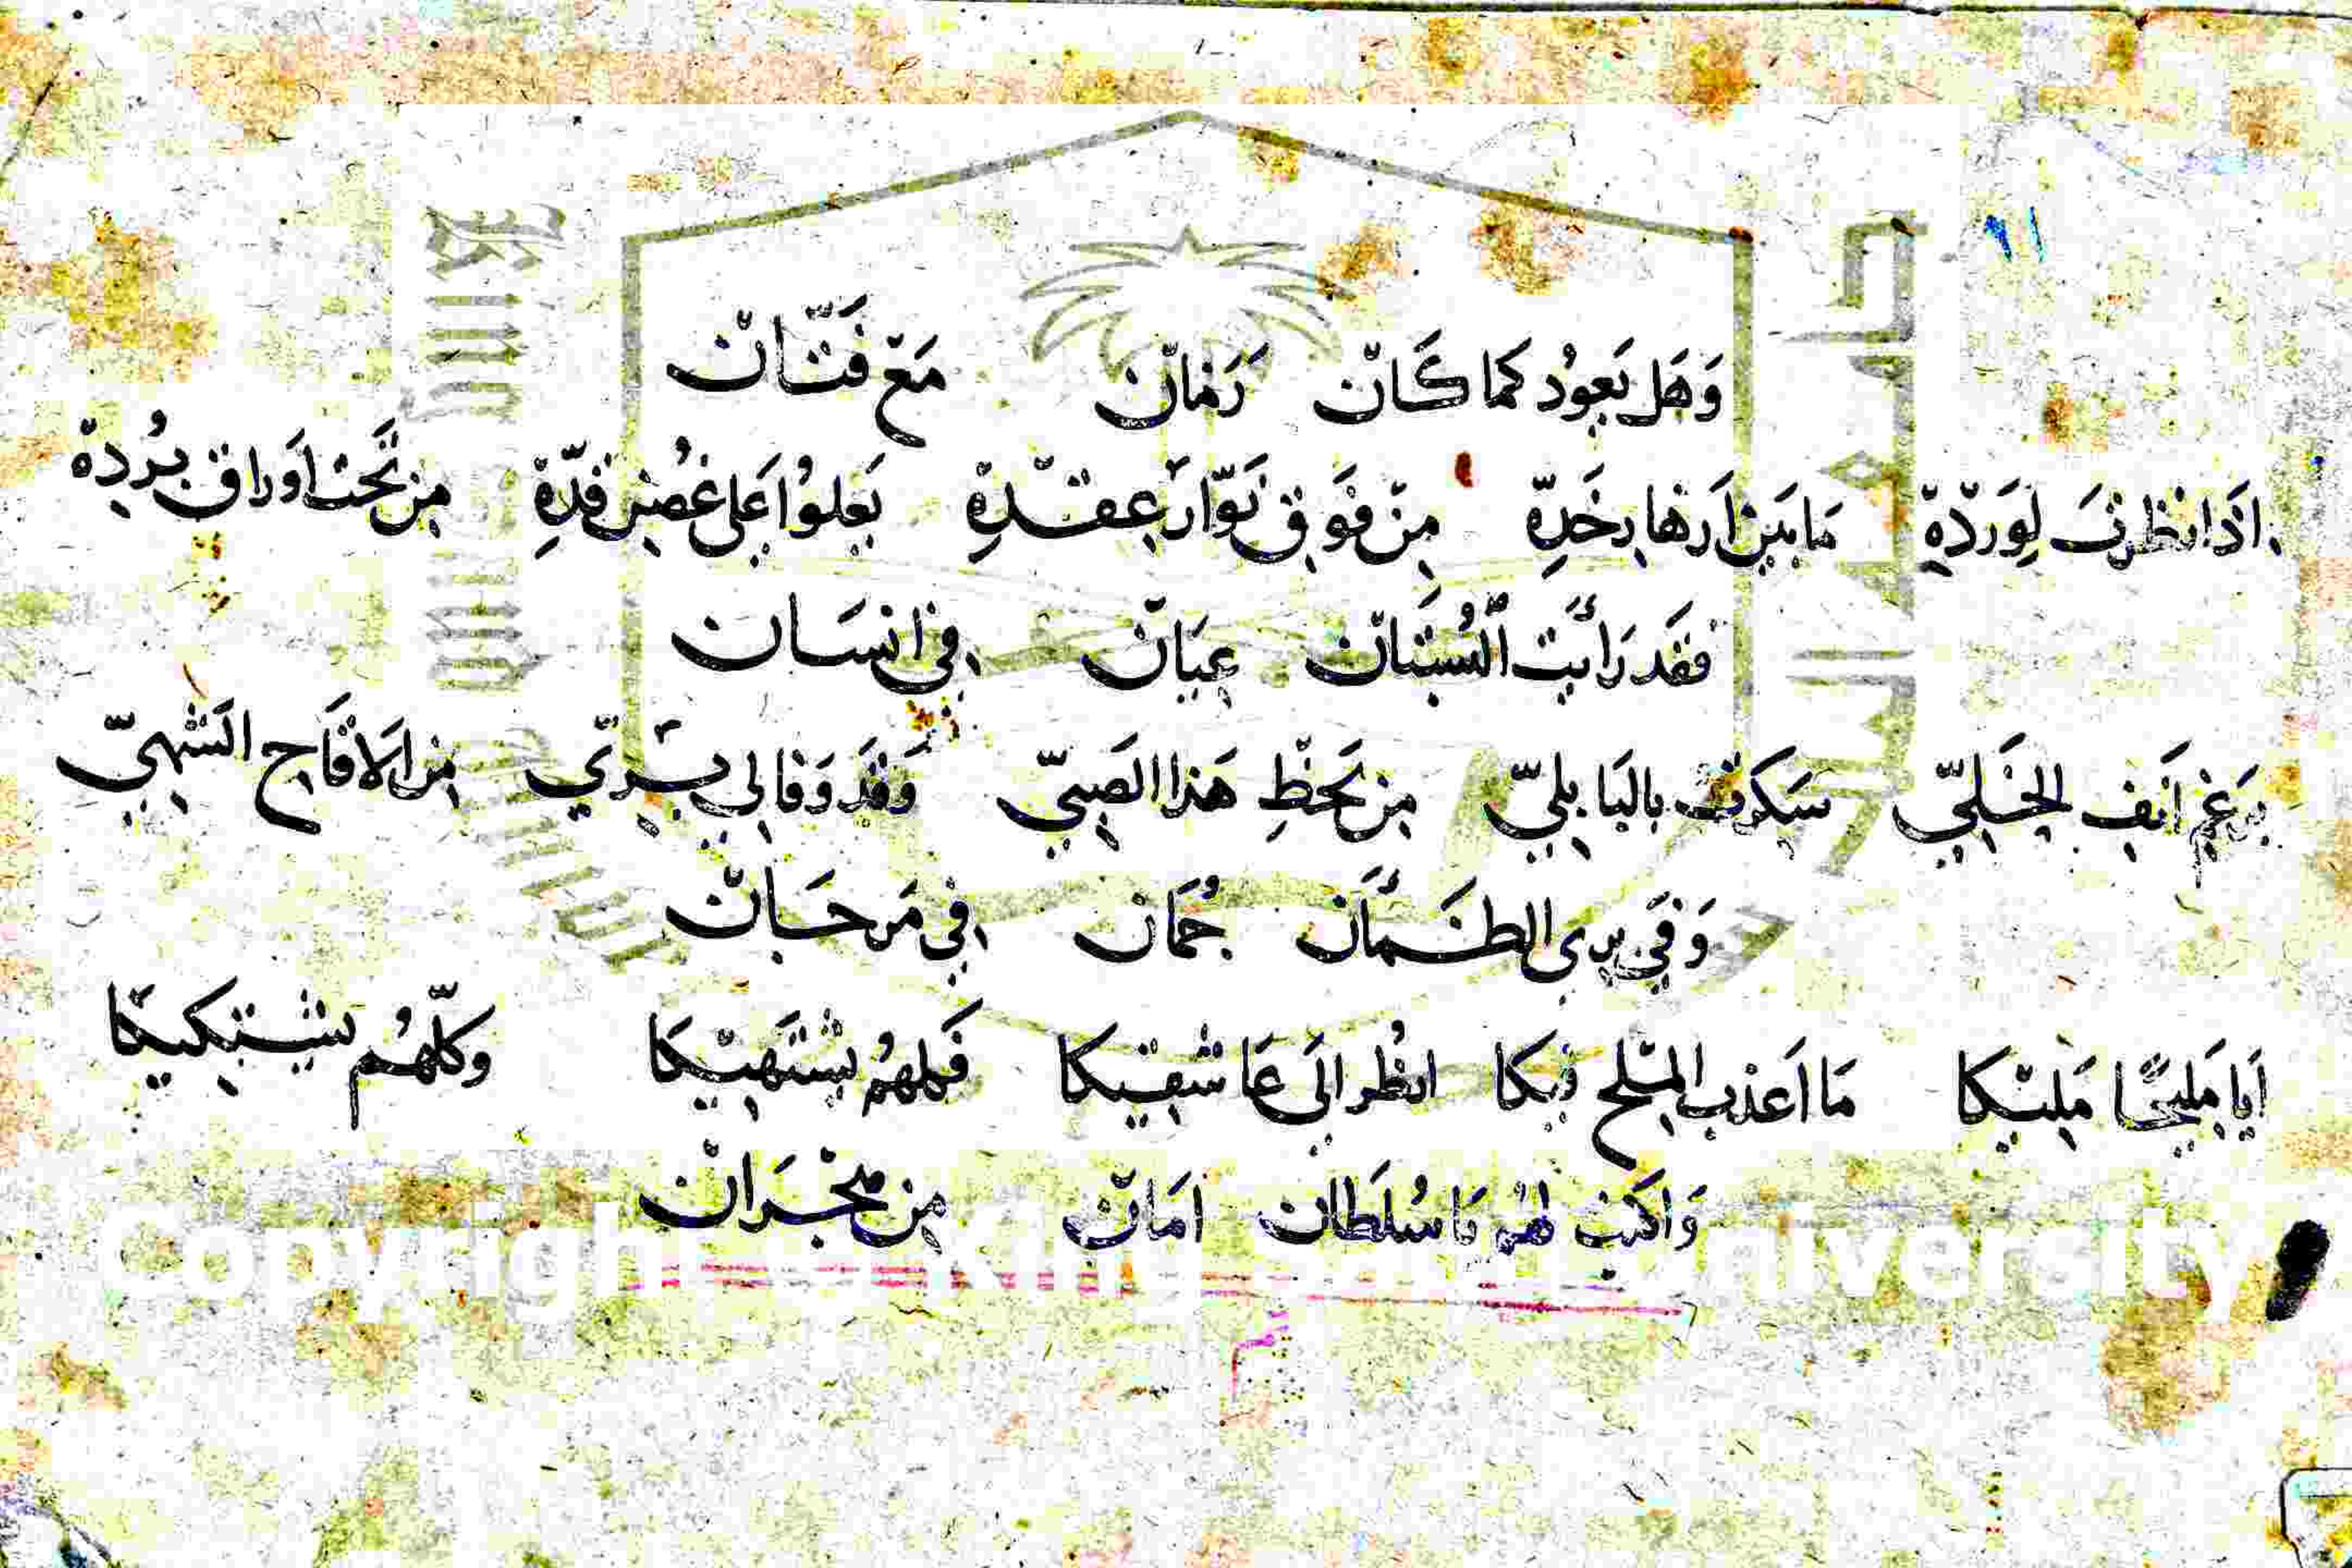 ٩١
وَهَل يَعودُ كما كَانْ زَمانْ مَعَ فَتَّانْ
اذَا نظرتَ لِوَردّهِ مَا بَينَ اَزهارِ خَدِّهِ مِنْ فَوقِ نَوّارِ عقدِهِ يَعلوُا عَلى غُصنِ قدّهِ مِن تَحتِ اَوراق بُردِهْ
فقَد رَاَيت الْبُستَانْ عِيَانْ فِي انسَان
برَغمِ اَنفِ الخَليّ سَكرتُ بالبَابِليّ مِن لَحظِ هَذا الصَبيّ وَقَد وَفا لِي بِرِيّ مِن الاقَاحِ الشَهيّ
وَفي يدى الظَمآن جُمَان فِي مَرجَانْ
اَيا مَليحًا مَليكَا مَا اَعذب المِلح فيكا انظُر الَى عَاشقِيكا فَكلهمُ يَشتَهيكَا وكلّهُم يشتكيكَا
وَاكتب لهُم يَا سُلطَان امَانْ مِن هِجْرَانْ
تم
Copyright © King University